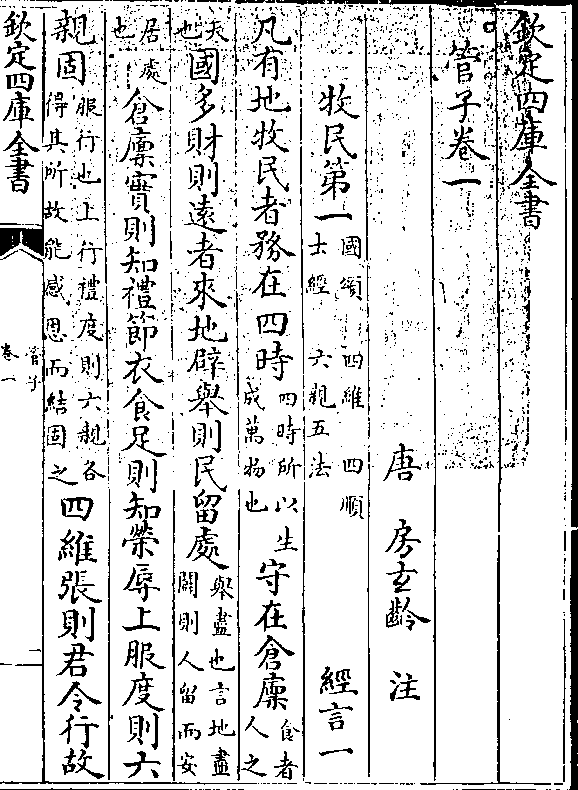 欽定四庫全書
管子卷一
唐 房玄齡 注
牧民第一 國頌 四維 四順 士經 六親五法 經言一
凡有地牧民者務在四時 四時所以生成萬物也 守在倉廩 食者人之
天也 國多財則遠者來地辟舉則民留處 舉盡也言地盡闢則人留而安
居處也 倉廩實則知禮節衣食足則知榮辱上服度則六
親固 服行也上行禮度則六親各得其所故能感恩而結固之 四維張則君令行故
欽定四庫全書 管子 卷一 一